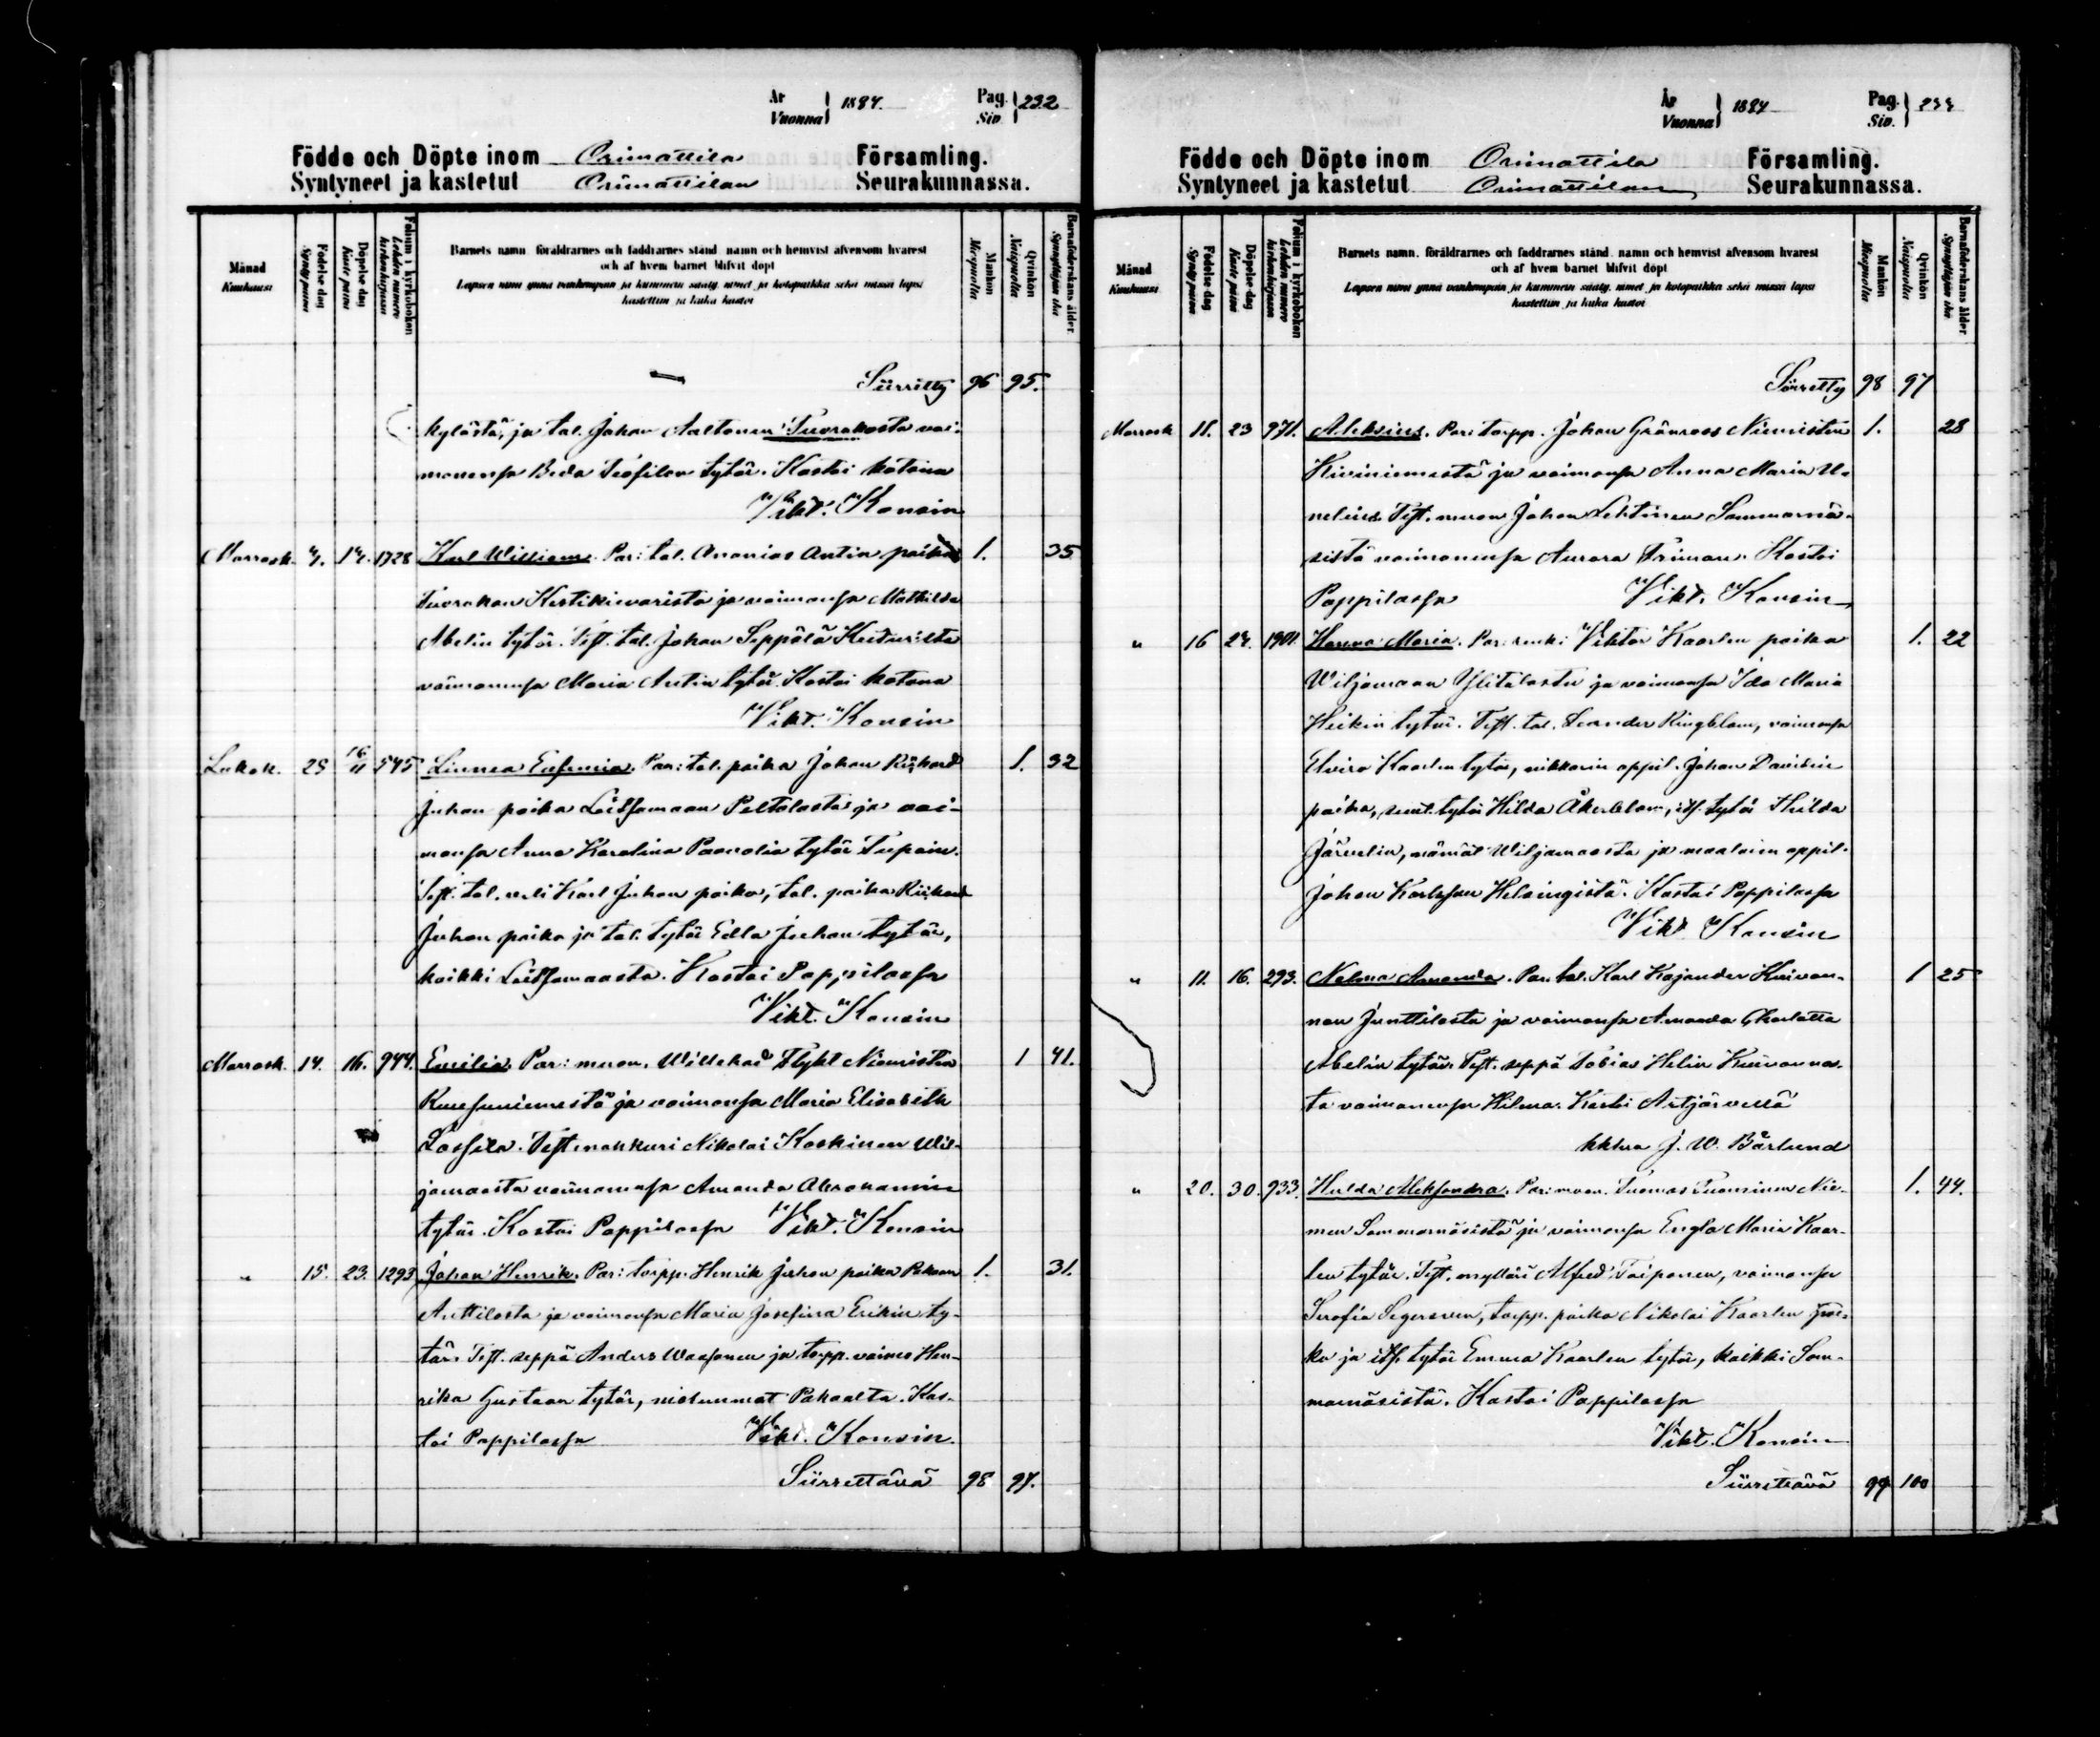 År
Vuonna } 1884.
Pag.
Siv. } 232
Födde och Döpte inom Orimattila Församling.
Syntyneet ja kastetut Orimattilan Seurakunnassa.
Månad
Kuukausi
Födelse dag
Synty päivä
Döpelse dag
Kaste päivä
Folium i kyrkoboken
Lehden numero kirkonkirjassa
Barnets namn, föräldrarnes och faddrarnes stånd, namn och hemvist äfvensom hvarest
och af hvem barnet blifvit döpt
Lapsen nimi ynnä vanhempain ja kummein sääty, nimet ja kotopaikka sekä missä lapsi
kastettiin ja kuka kastoi
Mankön
Miespuolia
Qvinkön
Naispuolia
Barnaföderskans ålder
Synnyttäjän ikä
Siirretty 96 95.
kylästä, ja tal. Johan Aaltonen Tuorakosta vai-
monensa Beda Teofilon tytär. Kastoi kotona
Vikt. Konsin
Marrask. 7. 17. 1728 Karl William. Par: tal. Ananias Antin poika 1. 35
Tuorakan Kestikievarista ja vaimonsa Mathilda
Abelin tytär. Test. tal. Johan Seppälä
vaimonensa Maria Antin tytär. Kastoi kotona
Vikt. Konsin
Lokak. 25 16/11 545 Linnea Eufemia. Par: tal. poika Johan Rikhard 1. 32
Juhan poika Leitsamaan Peltolasta ja vai-
monsa Anna Karolina Paavolin tytär
Test. tal. veli Karl Juhan poika, tal. poika Rikhard
Juhan poika ja tal. tytär Edla Juhan tytär,
kaikki Leitsamaasta. Kastoi Pappilassa
Vikt. Konsin
Marrask. 14. 16. 944. Emilia. Par: muon. Willehad Flykt Niemistin 1 41.
ja vaimonsa Maria Elisabeth
Lassila. Test. Nikolai Koskinen Wil-
jamaasta vaimonensa Amanda Abrahamin
tytär. Kastoi Pappilassa Vikt. Konsin
" 15. 23. 1293 Johan Henrik. Par: torpp. Henrik Juhon poika Pakaan 1. 31.
Anttilasta ja vaimonsa Maria Josefina Erikin ty-
tär. Test. seppä Anders Waasonen ja torpp. vaimo Hen-
rika Gustaan tytär, molemmat Pakaalta. Kas-
toi Pappilassa Vikt. Konsin.
Siirrettävä 98 97.
År
Vuonna } 1884
Pag.
Siv. } 233
Födde och Döpte inom Orimattila Församling.
Syntyneet ja kastetut Orimattilan Seurakunnassa.
Månad
Kuukausi
Födelse dag
Synty päivä
Döpelse dag
Kaste päivä
Folium i kyrkoboken
Lehden numero kirkonkirjassa
Barnets namn, föräldrarnes och faddrarnes stånd, namn och hemvist äfvensom hvarest
och af hvem barnet blifvit döpt
Lapsen nimi ynnä vanhempain ja kummein sääty, nimet ja kotopaikka sekä missä lapsi
kastettiin ja kuka kastoi
Mankön
Miespuolia
Qvinkön
Naispuolia
Barnaföderskans ålder
Synnyttäjän ikä
Siirretty 98 97
Marrask 11. 23 971. Aleksius. Par: torpp. Johan Grönroos Niemistin 1. 28
Kiviniemestä ja vaimonsa Anna Maria U-
nelius. Test. muon Johan Lehtinen Sammarnä-
sistä vaimonensa Aurora Friman. Kastoi
Pappilassa Vikt. Konsin
" 16 27. 1901. Hanna Maria. Par: renki Viktor Kaarlen poika 1. 22
Wiljamaan Ylitalosta ja vaimonsa Ida Maria
Heikin tytär. Test. tal. Leander Ringblom, vaimonsa
Elvira Kaarlen tytär, nikkarin oppil. Johan Davidin
poika, tytär Hilda Åkerblom, its. tytär Hilda
Järvelin, nämät Wiljamaasta ja maalarin oppil.
Johan Karlsson Helsingistä. Kastoi Pappilassa
Vikt. Konsin
" 11. 16. 293. Nelma Amanda. Par: tal. Karl Kajander Kuivan- 1 25
non Junttilasta ja vaimonsa Amanda Charlotta
Abelin tytär. Test. seppä Tobias Helin Kuivannos-
ta vaimonensa Hilma. Kastoi Artjärvellä
khhra J. W. Bärlund
" 20. 30. 933. Hulda Aleksandra. Par: muon. Tuomas Tuominen Nie- 1. 44.
men Sammarnäsistä ja vaimonsa Engla Maria Kaar-
len tytär. Test. mylläri Alfred Toiponen, vaimonsa
Serafia Segersven, torpp. poika Nikolai Kaarlen poi-
ka ja its. tytär Emma Kaarlen tytär, kaikki Sam-
marnäsistä. Kastoi Pappilassa
Vikt. Konsin
Siirrettävä 99 100